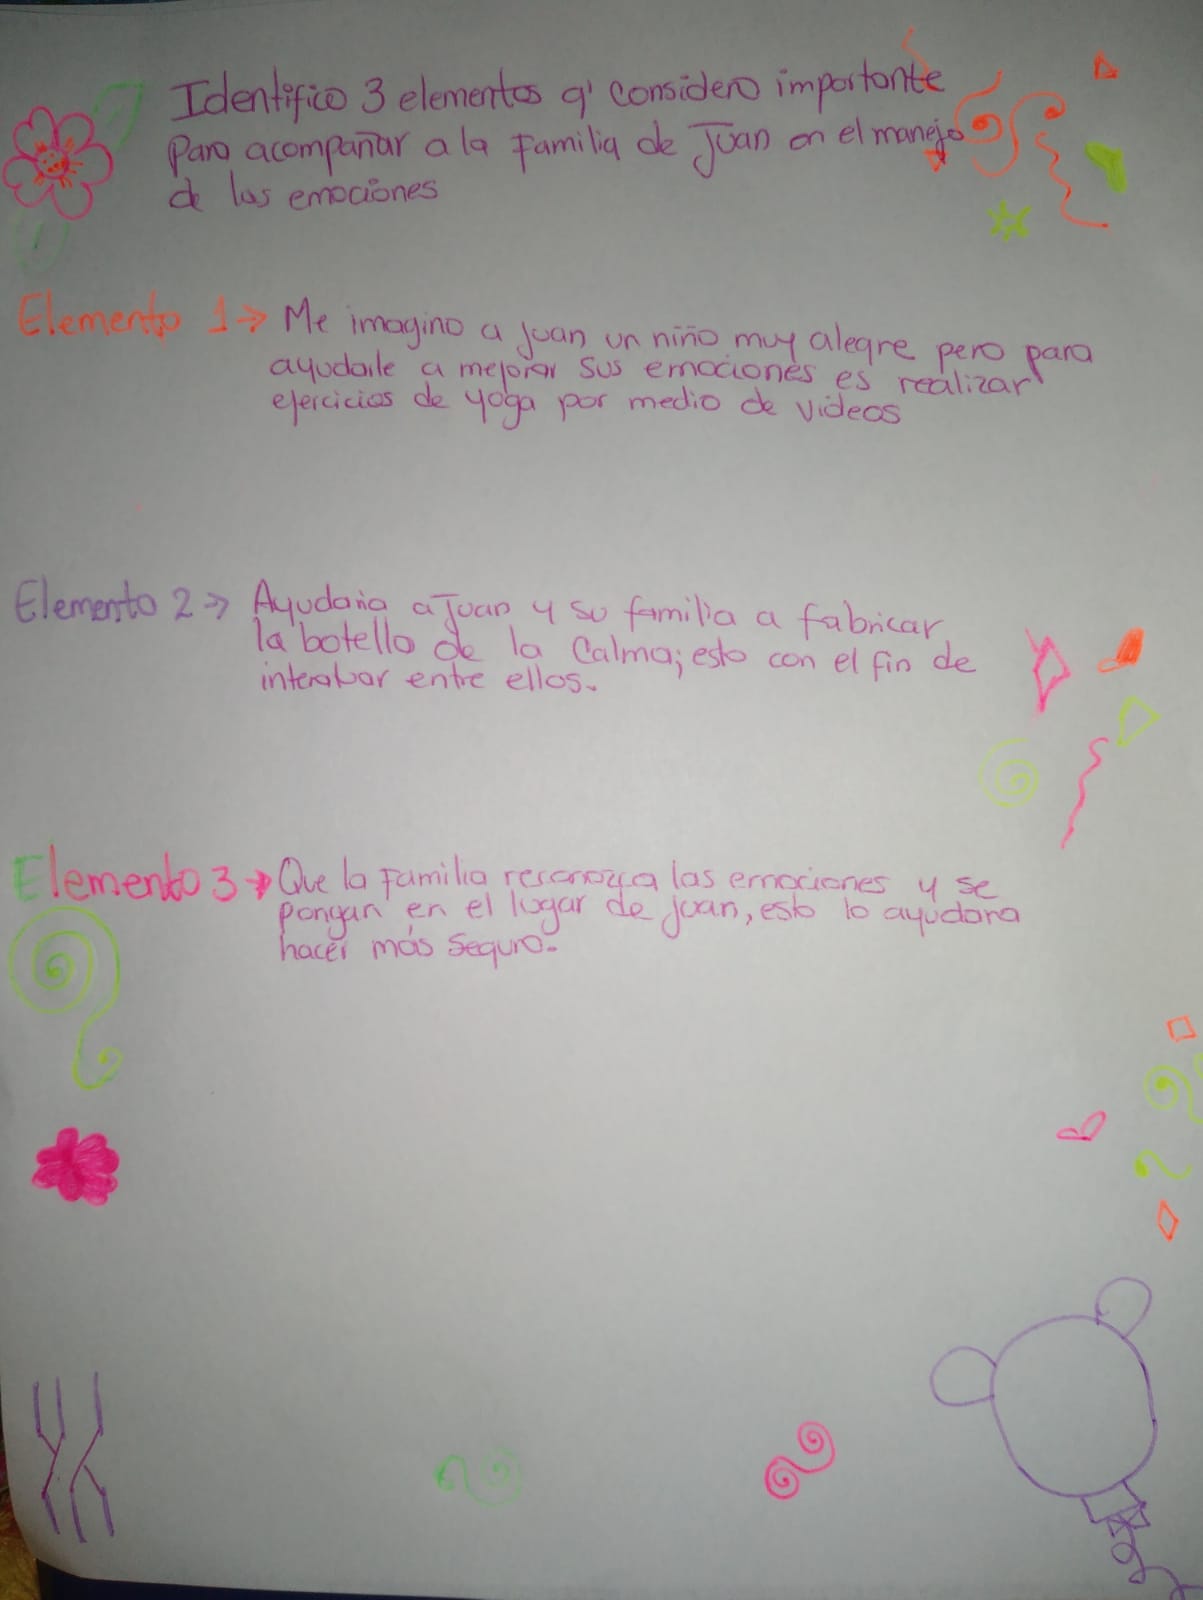 Identifico 3 elementos q' considero importante
Para acompañar a la Familia de Juan en el manejo
de las emociones
Elemento 1→ Me imagino a Juan un niño muy alegre pero para
ayudarle a mejorar sus emociones es realizar
ejercicios de yoga por medio de videos
Elemento 2→ Ayudaria a Juan y su familia a fabricar
la botella de la Calma; esto con el fin de
entre ellos.
Elemento 3→ Que la Familia reconozca las emociones y se
pongan en el lugar de juan, esto lo ayudara
hacer más seguro.